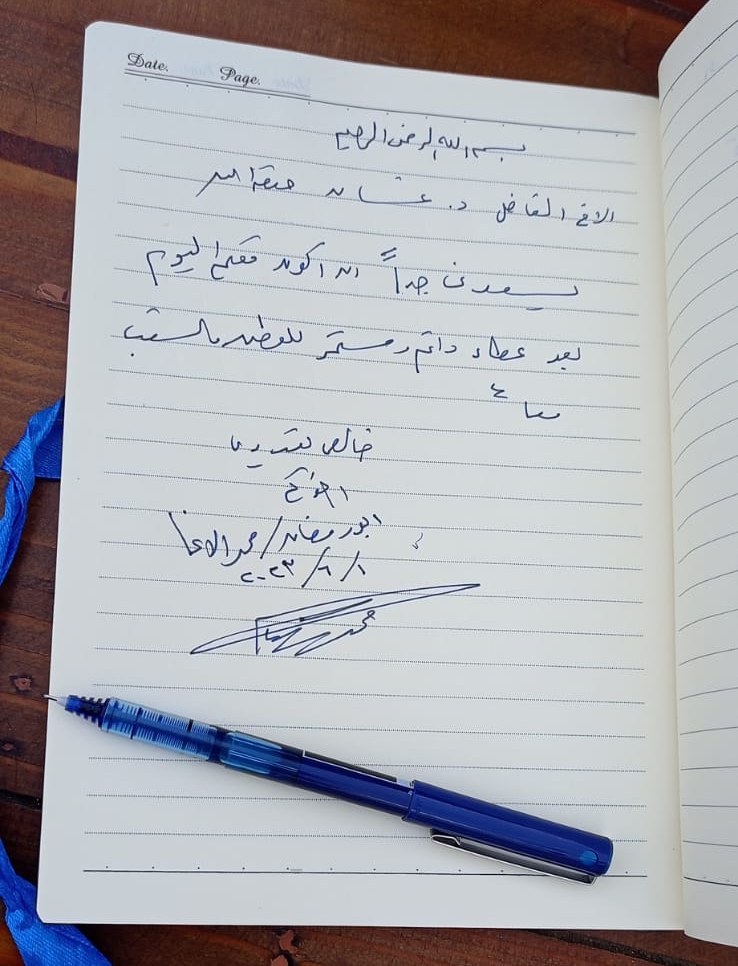 Date. Page.
بسم الله الرحمن الرحيم
الاخ الفاضل د. عثمان حفظه الله
يسعدني جداً ان اكون معكم اليوم
بعد عطاء دائم ومستمر للوطن والشعب
معاً
خالص تقديري
اخوكم
ابو رمضان / محمد الاغا
١ / ٦ / ٢٠٢٣
محمد